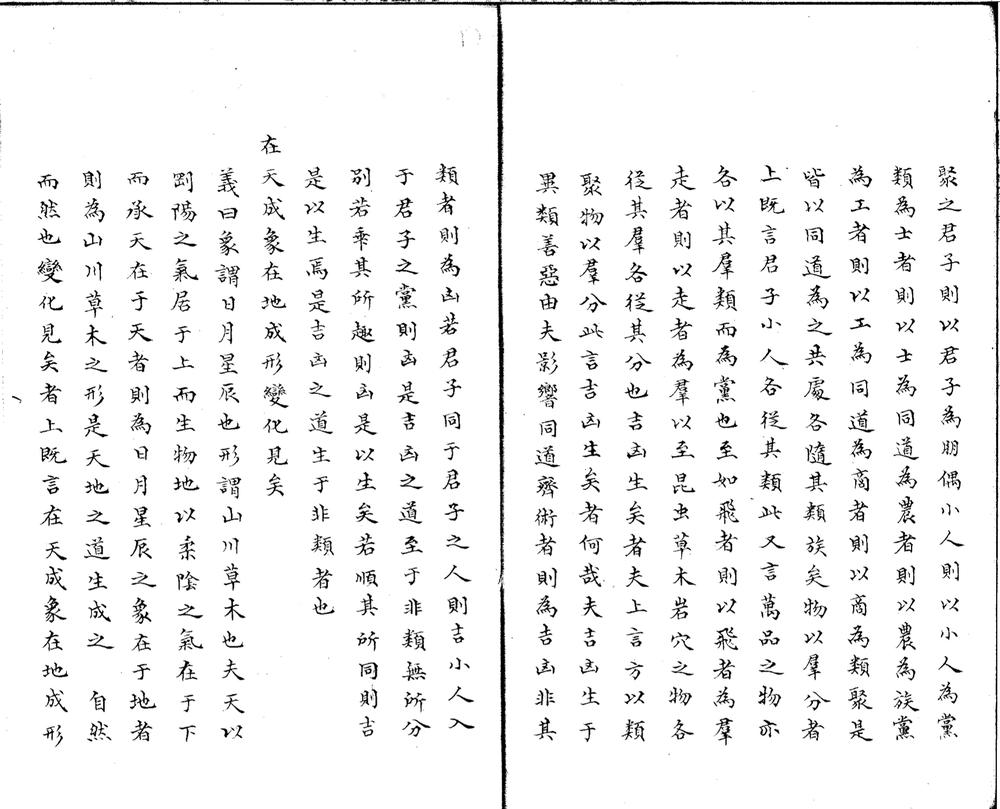 聚之君子則以君子為朋偶小人則以小人為黨
類為士者則以士為同道為農者則以農為族黨
為工者則以工為同道為商者則以商為類聚是
皆以同道為之共處各隨其類族矣物以羣分者
上既言君子小人各從其類此又言萬品之物亦
各以其羣類而為黨也至如飛者則以飛者為羣
走者則以走者為羣以至昆虫草木岩穴之物各
從其羣各從其分也吉凶生矣者夫上言方以類
聚物以羣分此言吉凶生矣者何哉夫吉凶生于
異類善惡由夫影響同道齊術者則為吉凶非其
類者則為凶若君子同于君子之人則吉小人入
于君子之黨則凶是吉凶之道至于非類無所分
別若乖其所趣則凶是以生矣若順其所同則吉
是以生焉是吉凶之道生于非類者也
在天成象在地成形變化見矣
義曰象謂日月星辰也形謂山川草木也夫天以
剛陽之氣居于上而生物地以柔陰之氣在于下
而承天在于天者則為日月星辰之象在于地者
則為山川草木之形是天地之道生成之 自然
而然也變化見矣者上既言在天成象在地成形